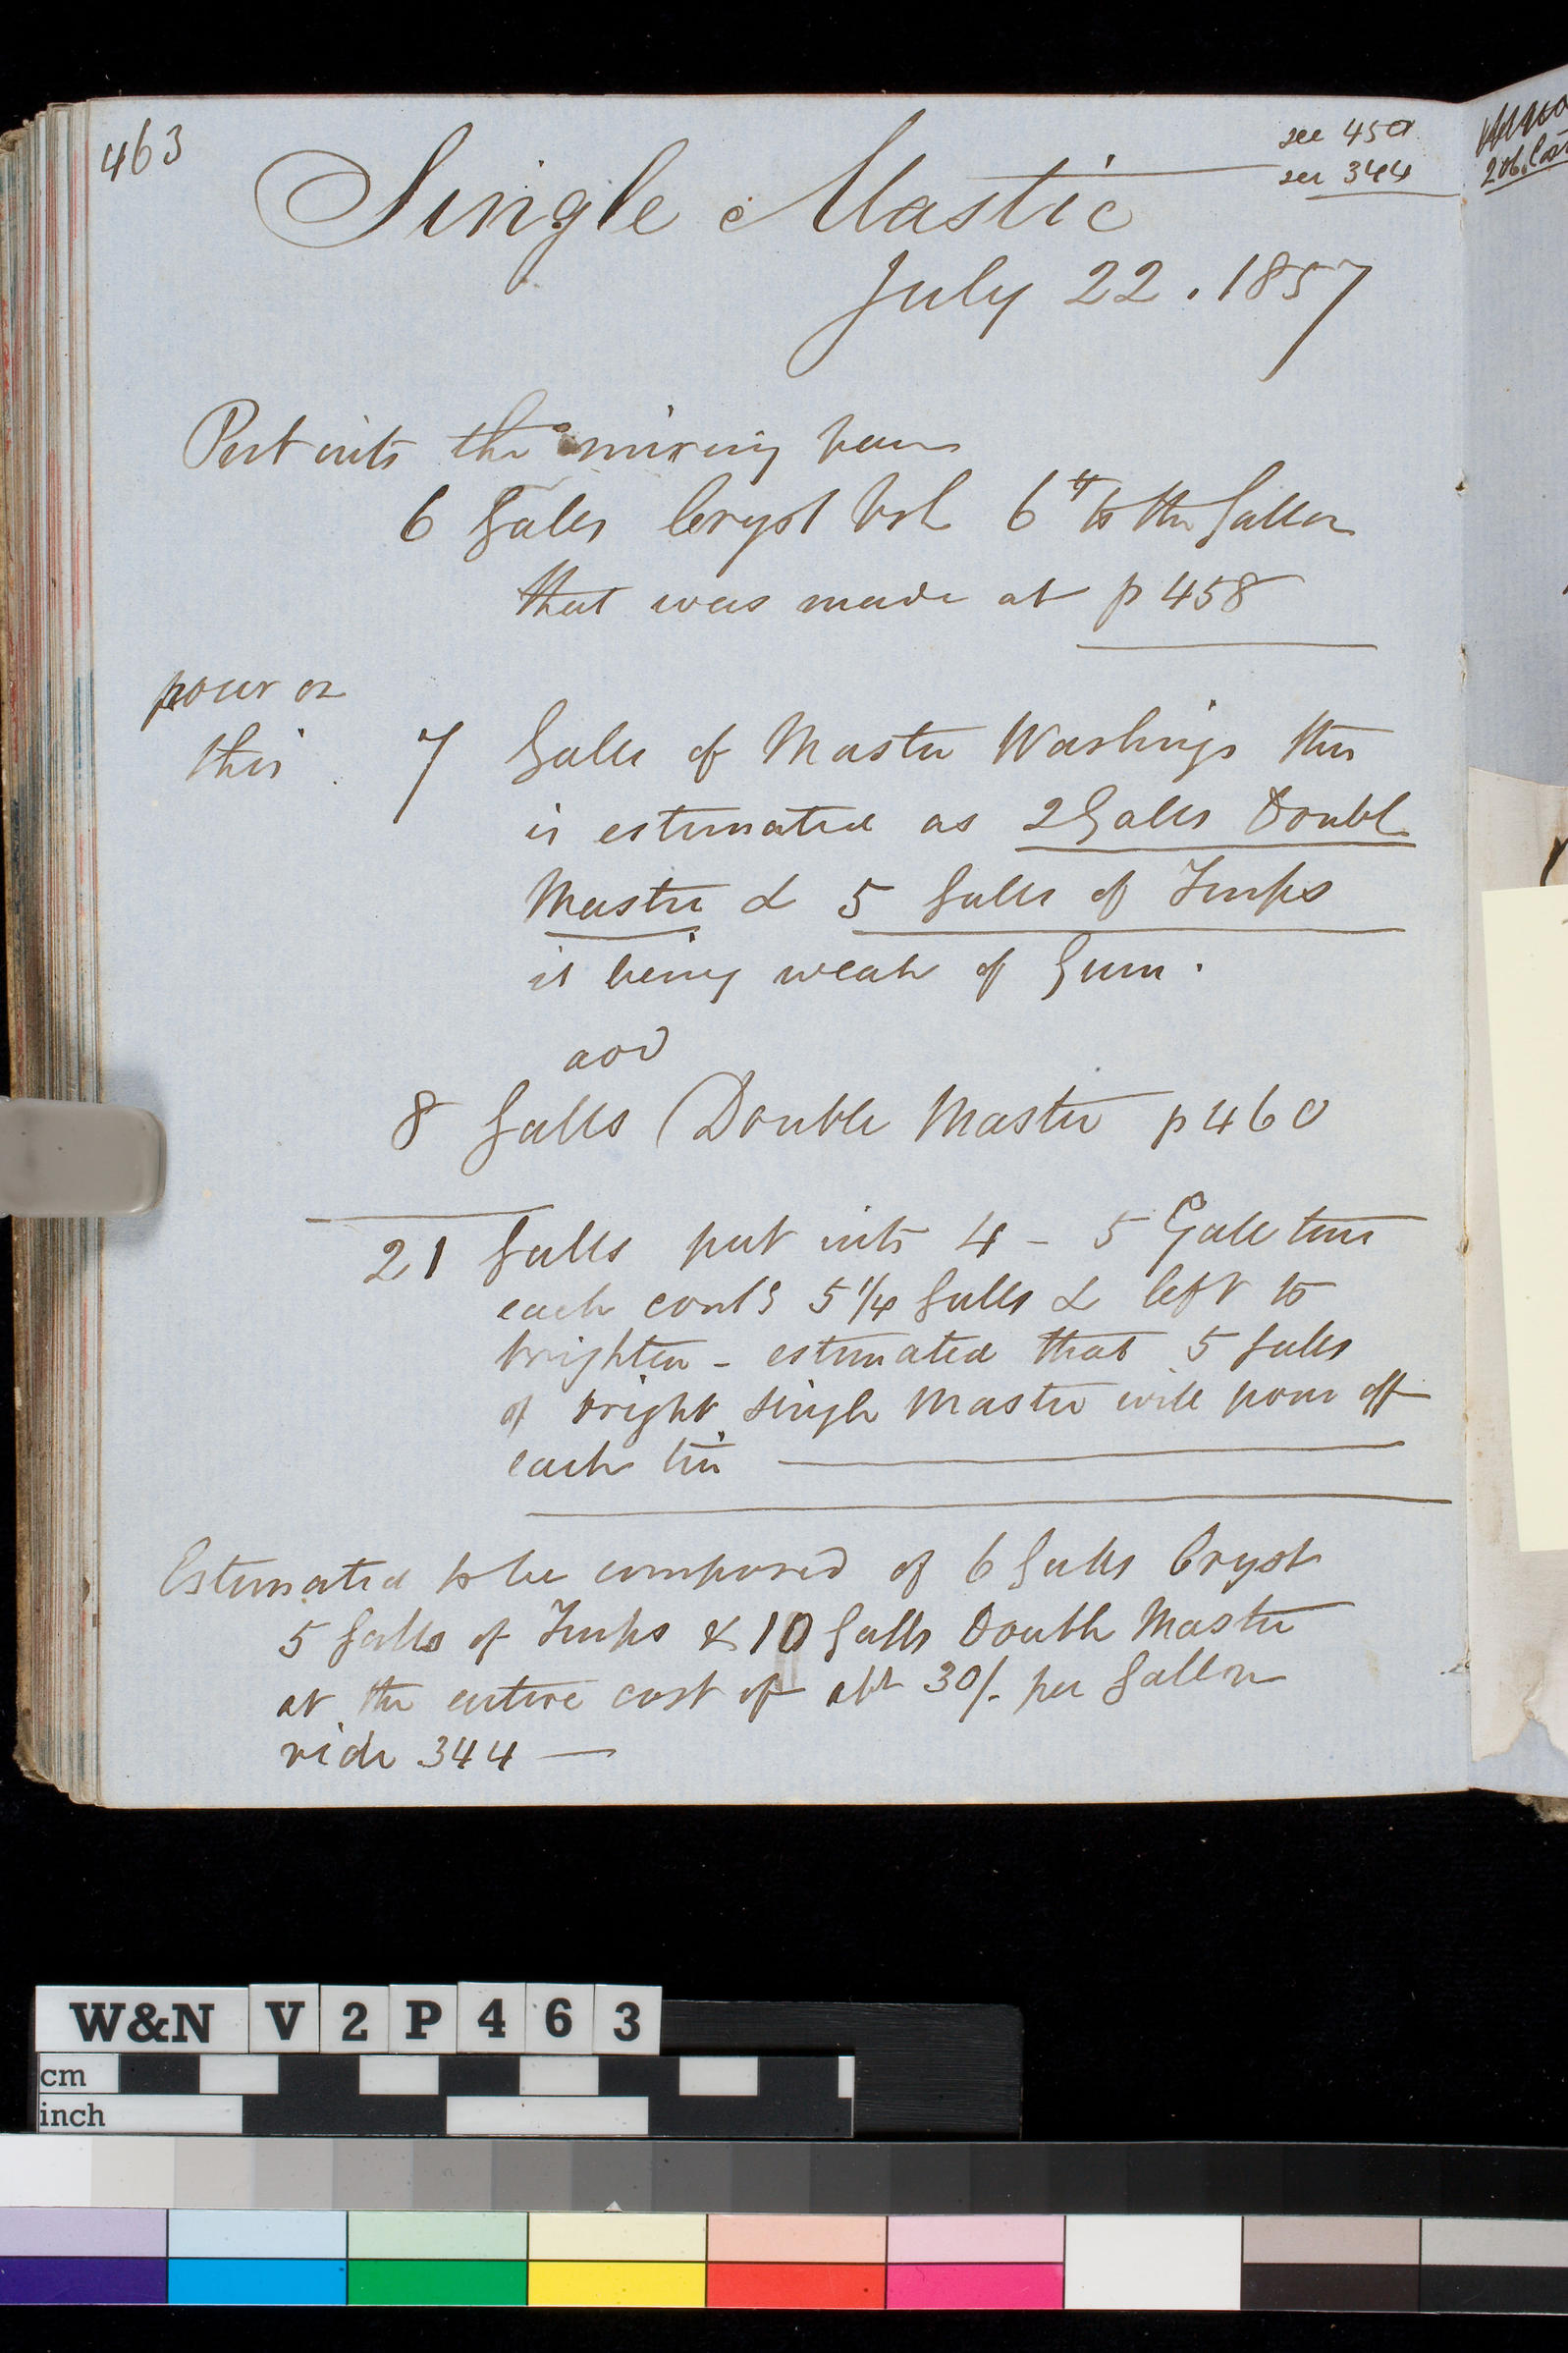 463
see 450
see 344
Single Mastic
July 22. 1857
Put into the mixing
6 Galls Cryst Vsh 6 to the Gallon
that was made at p 458
pour on
this
7 Galls of Mastic Washings this
is estimated as 2 Galls Double
Mastic & 5 Galls of Turps
it being weak of Gum.
add
8 Galls Double Mastic p 460
21 Galls put into 4 - 5 Gall tins
each contg 5 1/4 Galls & left to
brighten - estimated that 5 Galls
of bright single Mastic will pour off
each tin
Estimated to be composed of 6 Galls Cryst
5 Galls of Turps & 10 Galls Double Mastic
at the entire cost of abt 30/- per Gallon
vide 344
W&N V 2 P 4 6 3
cm
inch